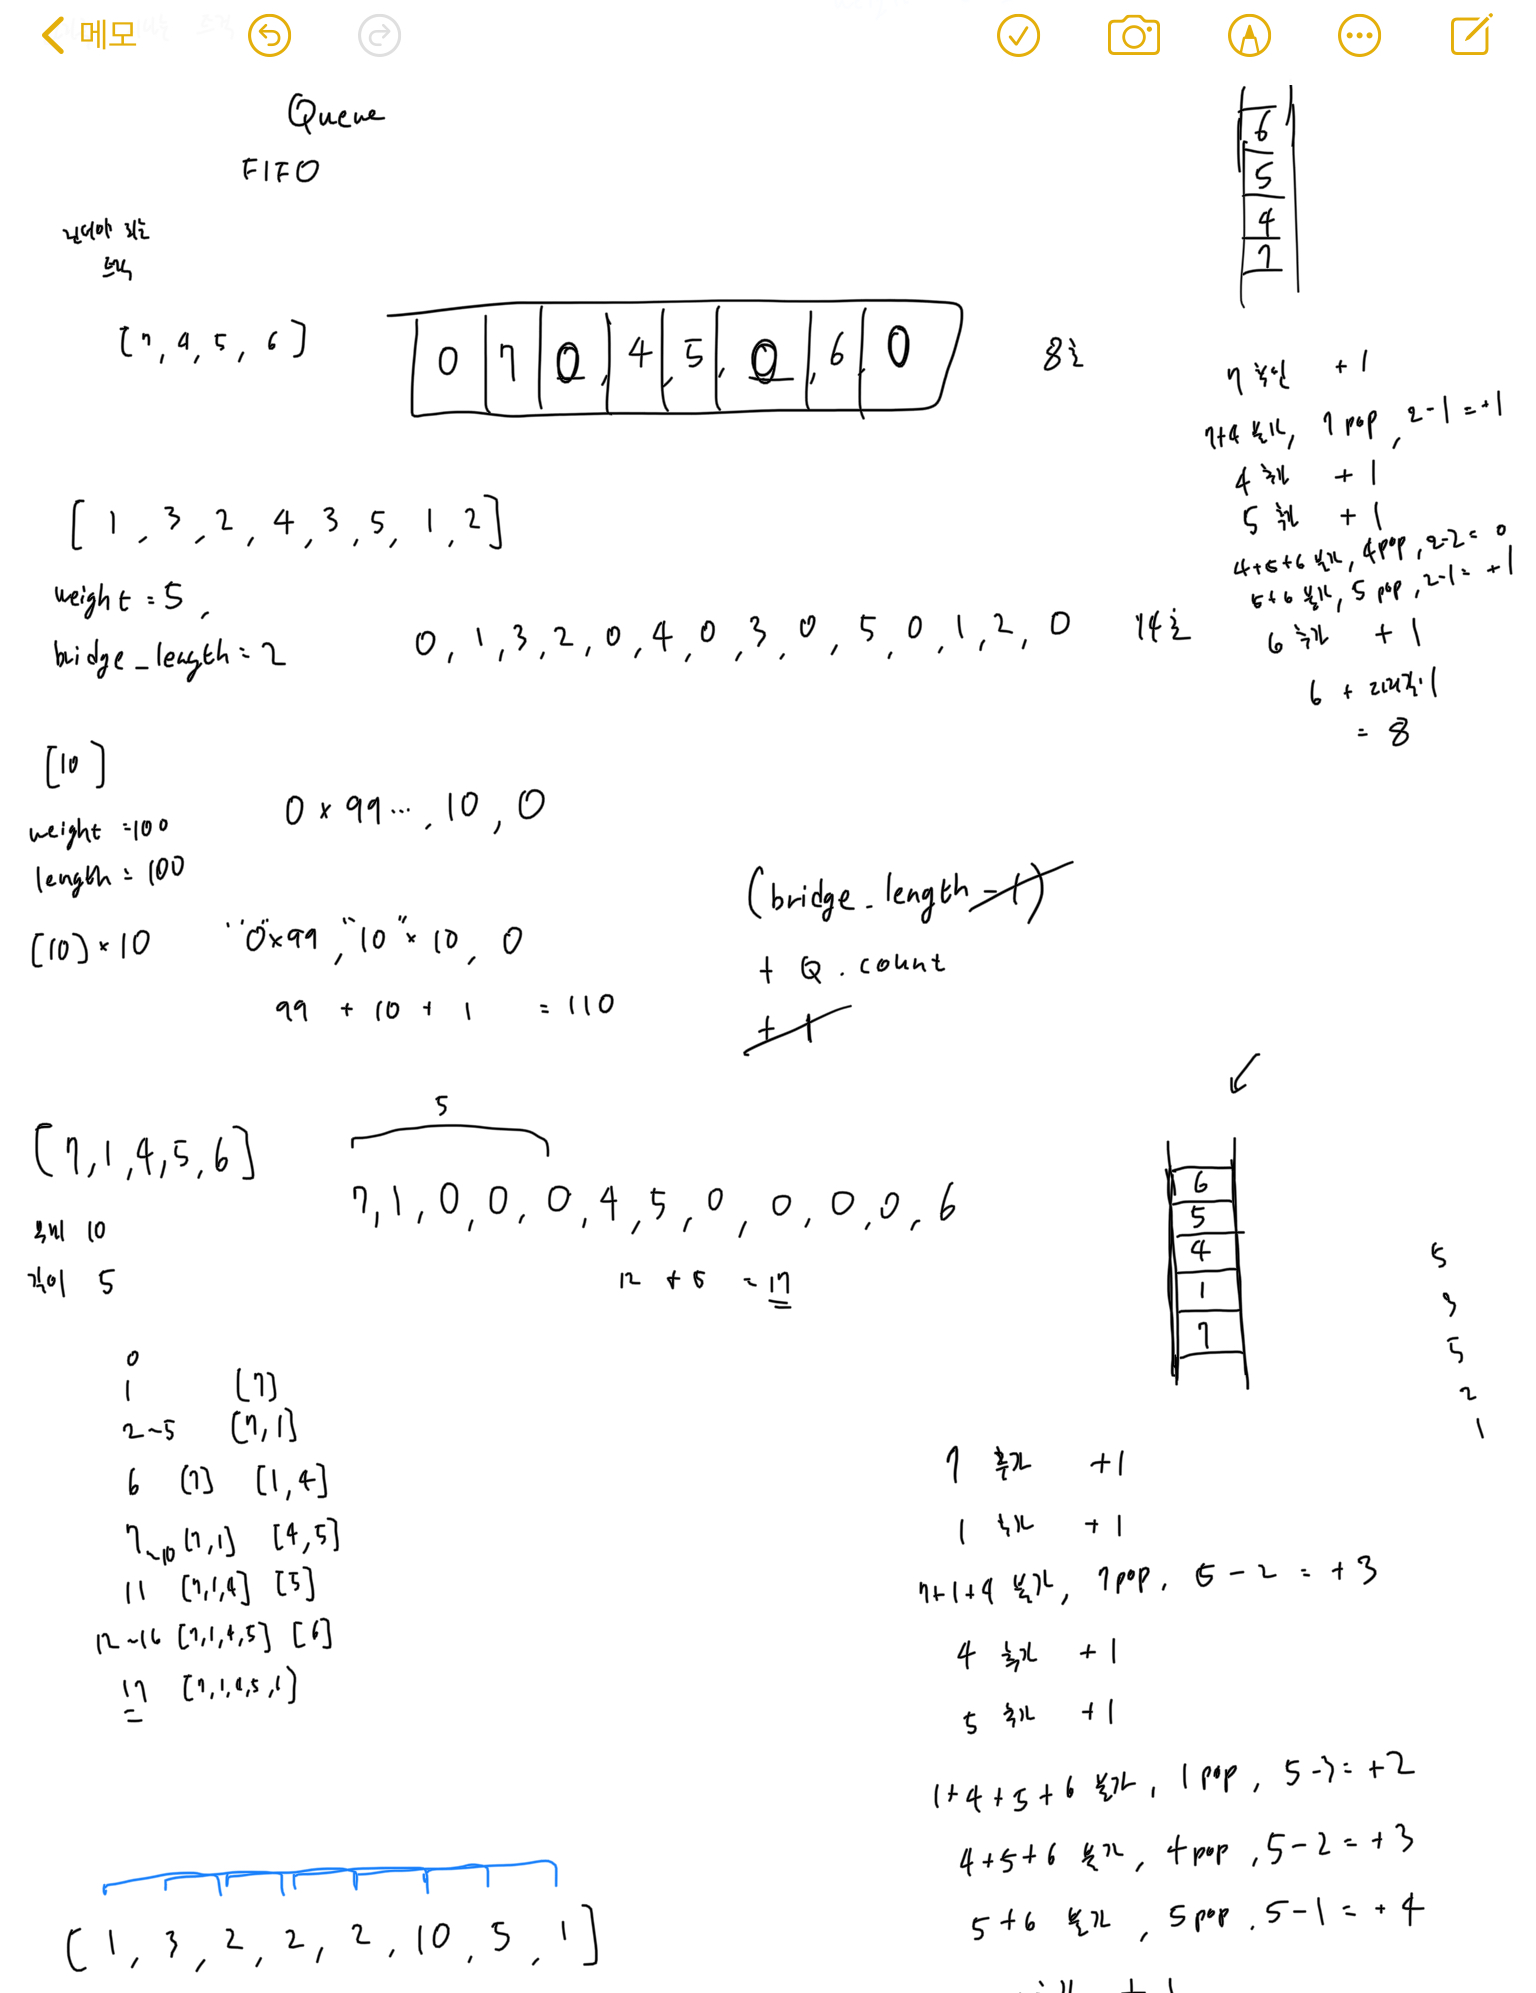 메모
Queue
FIFO
건너야 되는
트럭
[7, 4, 5, 6]
0 7 0, 4, 5, 0, 6, 0
8초
6
5
4
7
7 +1
7+4 불가, 7 pop, 2-1=+1
4 추가 +1
5 추가 +1
4+5+6 불가, 4pop, 2-2= 0
5+6 불가, 5 pop, 2-1= +1
6 추가 +1
6 + 마지막·1
= 8
[1, 3, 2, 4, 3, 5, 1, 2]
weight = 5,
bridge_length = 2
0, 1, 3, 2, 0, 4, 0, 3, 0, 5, 0, 1, 2, 0 14초
[10]
weight =100
length = 100
0 × 99..., 10, 0
[10] × 10
"0"×99, "10" × 10, 0
99 + 10 + 1 = 110
(bridge_length - 1)
+ Q.count
+ 1
[7,1,4,5,6]
무게 10
길이 5
5
7,1,0,0,0,4,5,0,0,0,0,6
12 + 5 = 17
6
5
4
1
7
5
3
5
2
1
0
1 [7]
2~5 [7,1]
6 [7] [1,4]
7~10 [7,1] [4,5]
11 [7,1,4] [5]
12~16 [7,1,4,5] [6]
17 [7,1,4,5,6]
7 추가 +1
1 추가 +1
7+1+4 불가, 7pop, 5-2 = +3
4 추가 +1
5 추가 +1
1+4+5+6 불가, 1 pop, 5-3= +2
4+5+6 불가, 4pop, 5-2= +3
5+6 불가, 5pop, 5-1= +4
[1, 3, 2, 2, 2, 10, 5, 1]